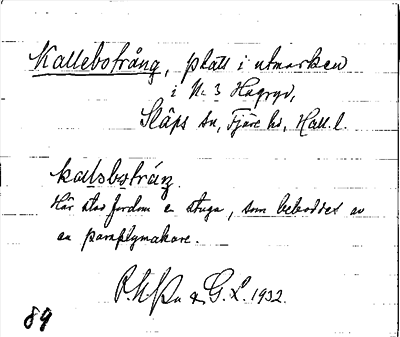 Kallebotrång, plats i utmarken
i No 3 Hagryd,
Släps sn, Fjäre hd, Hall. l.
kalsbotráŋ.
Här stod fordom en stuga, som beboddes av
en paraplymakare.
G. L. 1932.
89